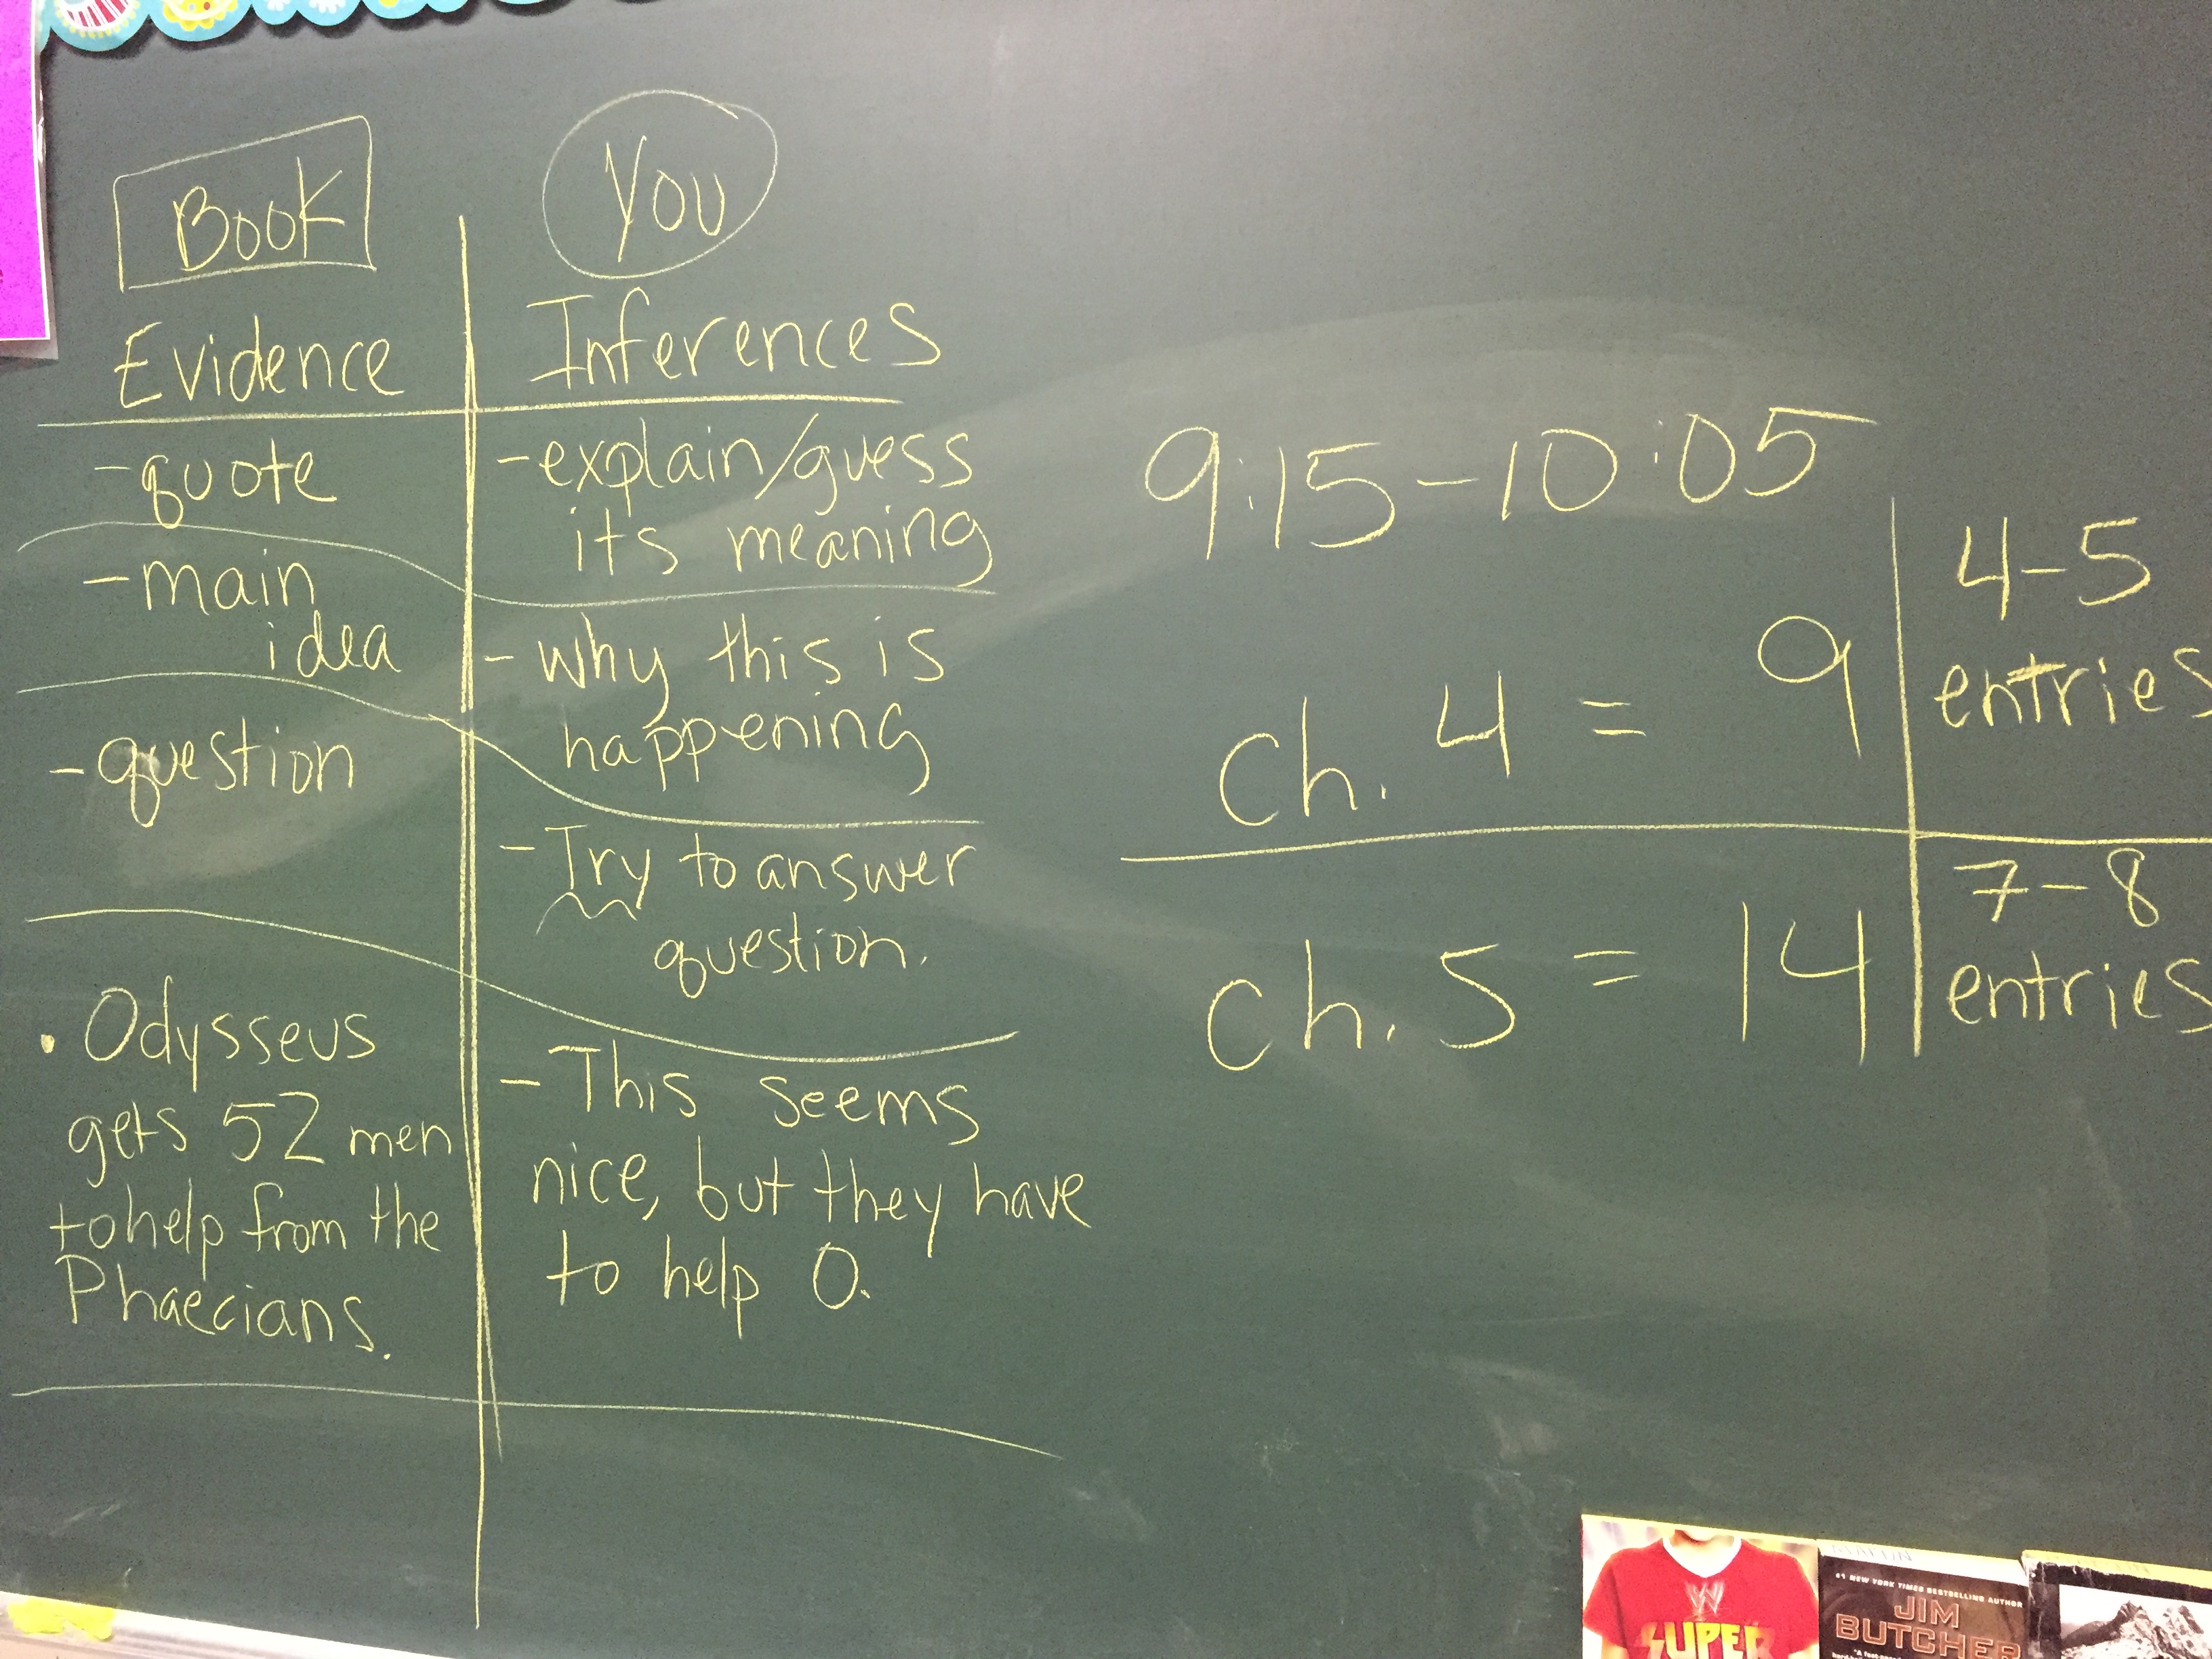 Book
Evidence
-quote
-main
idea
-question
• Odysseus
gets 52 men
to help from the
Phaecians.
You
Inferences
-explain/guess
its meaning
- why this is
happening
- Try to answer
question.
- This seems
nice, but they have
to help O.
9:15-10:05
Ch. 4 = 9
4-5
entries
Ch. 5 = 14
7-8
entries
W
SUPER
#1 NEW YORK TIMES BESTSELLING AUTHOR
JIM
BUTCHER